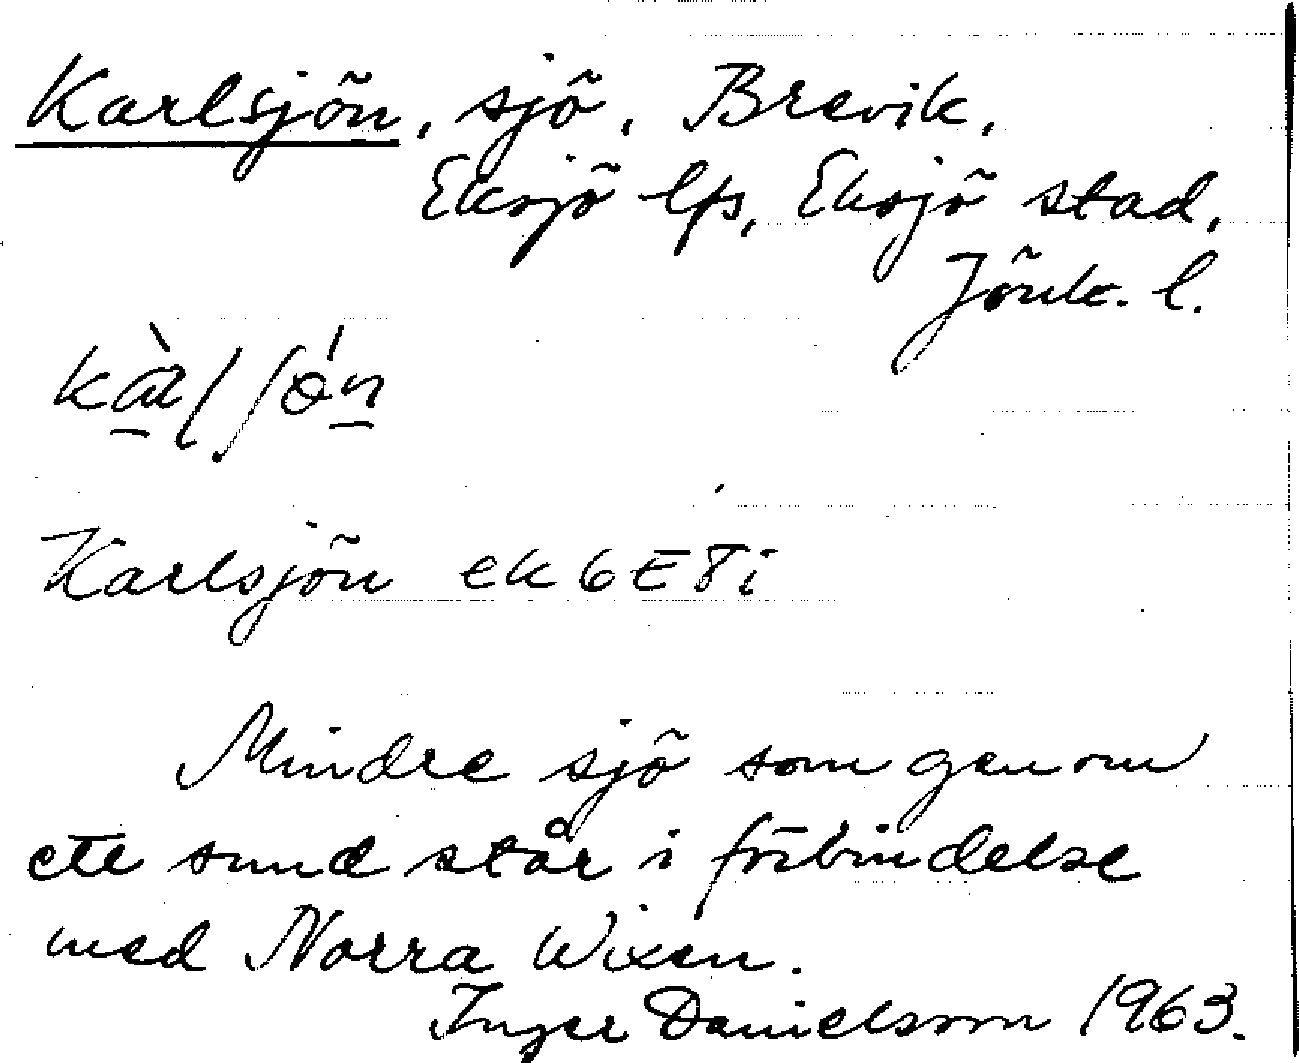 Karlsjön, sjö, Brevik,
Eksjö lfs, Eksjö stad,
Jönk. l.
Karlsjön ek 6 E 8 i
Mindre sjö som genom
ett sund står i förbindelse
med Norra Wixen.
Inger Danielsson 1963.